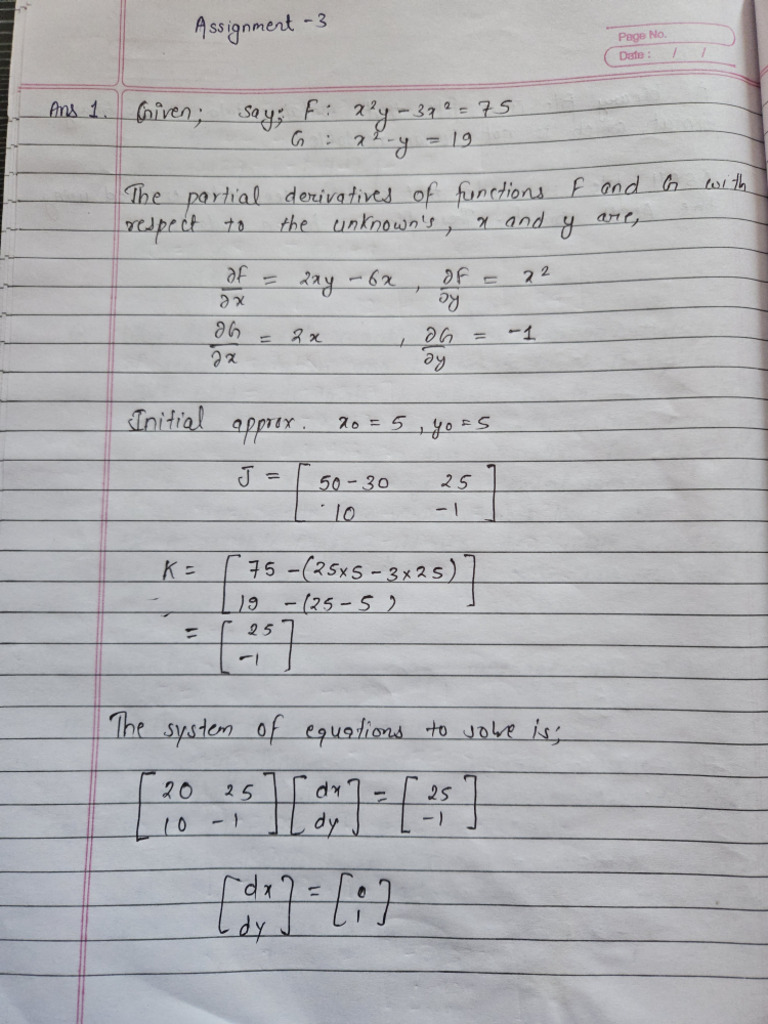 Assignment - 3
Page No.
Date : / /
Ans 1. Given; say; F : x²y - 3x² = 75
G : x² - y = 19
The partial derivatives of functions F and G with
respect to the unknown's, x and y are,
∂F/∂x = 2xy - 6x , ∂F/∂y = x²
∂G/∂x = 2x , ∂G/∂y = -1
Initial approx. x0 = 5 , y0 = 5
J = [ 50 - 30 25
10 -1 ]
K = [ 75 - (25×5 - 3×25)
19 - (25 - 5 ) ]
= [ 25
-1 ]
The system of equations to solve is;
[ 20 25 ; 10 -1 ] [ dx ; dy ] = [ 25 ; -1 ]
[ dx ; dy ] = [ 0 ; 1 ]